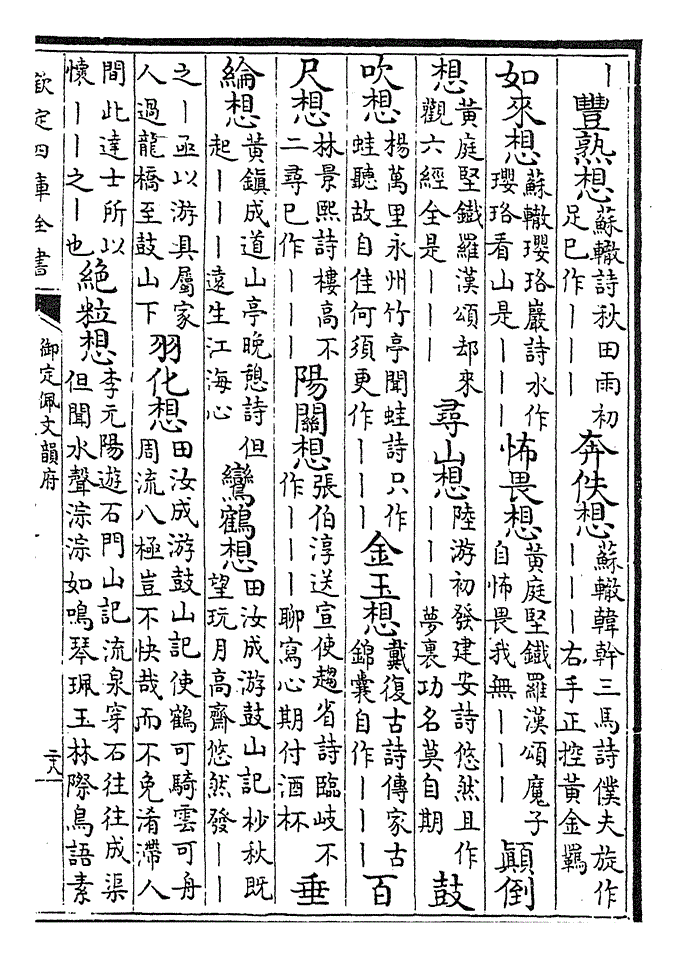 丨豐熟想蘇轍詩秋田雨初足已作丨丨丨奔佚想蘇轍韓幹三馬詩僕夫旋作丨丨丨右手正控黃金羈
如來想蘇轍瓔珞巖詩水作瓔珞看山是丨丨丨怖畏想黃庭堅鐵羅漢頌魔子自怖畏我無丨丨丨顚倒
想黃庭堅鐵羅漢頌却來觀六經全是丨丨丨尋山想陸游初發建安詩悠然且作丨丨丨夢裏功名莫自期鼓
吹想楊萬里永州竹亭聞蛙詩只作蛙聽故自佳何須更作丨丨丨金玉想戴復古詩傳家古錦囊自作丨丨丨百
尺想林景熙詩樓高不二尋已作丨丨丨陽關想張伯淳送宣使趙省詩臨岐不作丨丨丨聊寫心期付酒杯垂
綸想黃鎮成道山亭晚憩詩但起丨丨丨遠生江海心鸞鶴想田汝成游鼓山記杪秋既望玩月高齋悠然發丨丨
之丨亟以游具屬家人過龍橋至鼓山下羽化想田汝成游鼓山記使鶴可騎雲可舟周流八極豈不快哉而不免淆滯人
間此達士所以懷丨丨之丨也絕粒想李元陽遊石門山記流泉穿石往往成渠但聞水聲淙淙如鳴琴珮玉林際鳥語素
欽定四庫全書
御定佩文韻府
二十八